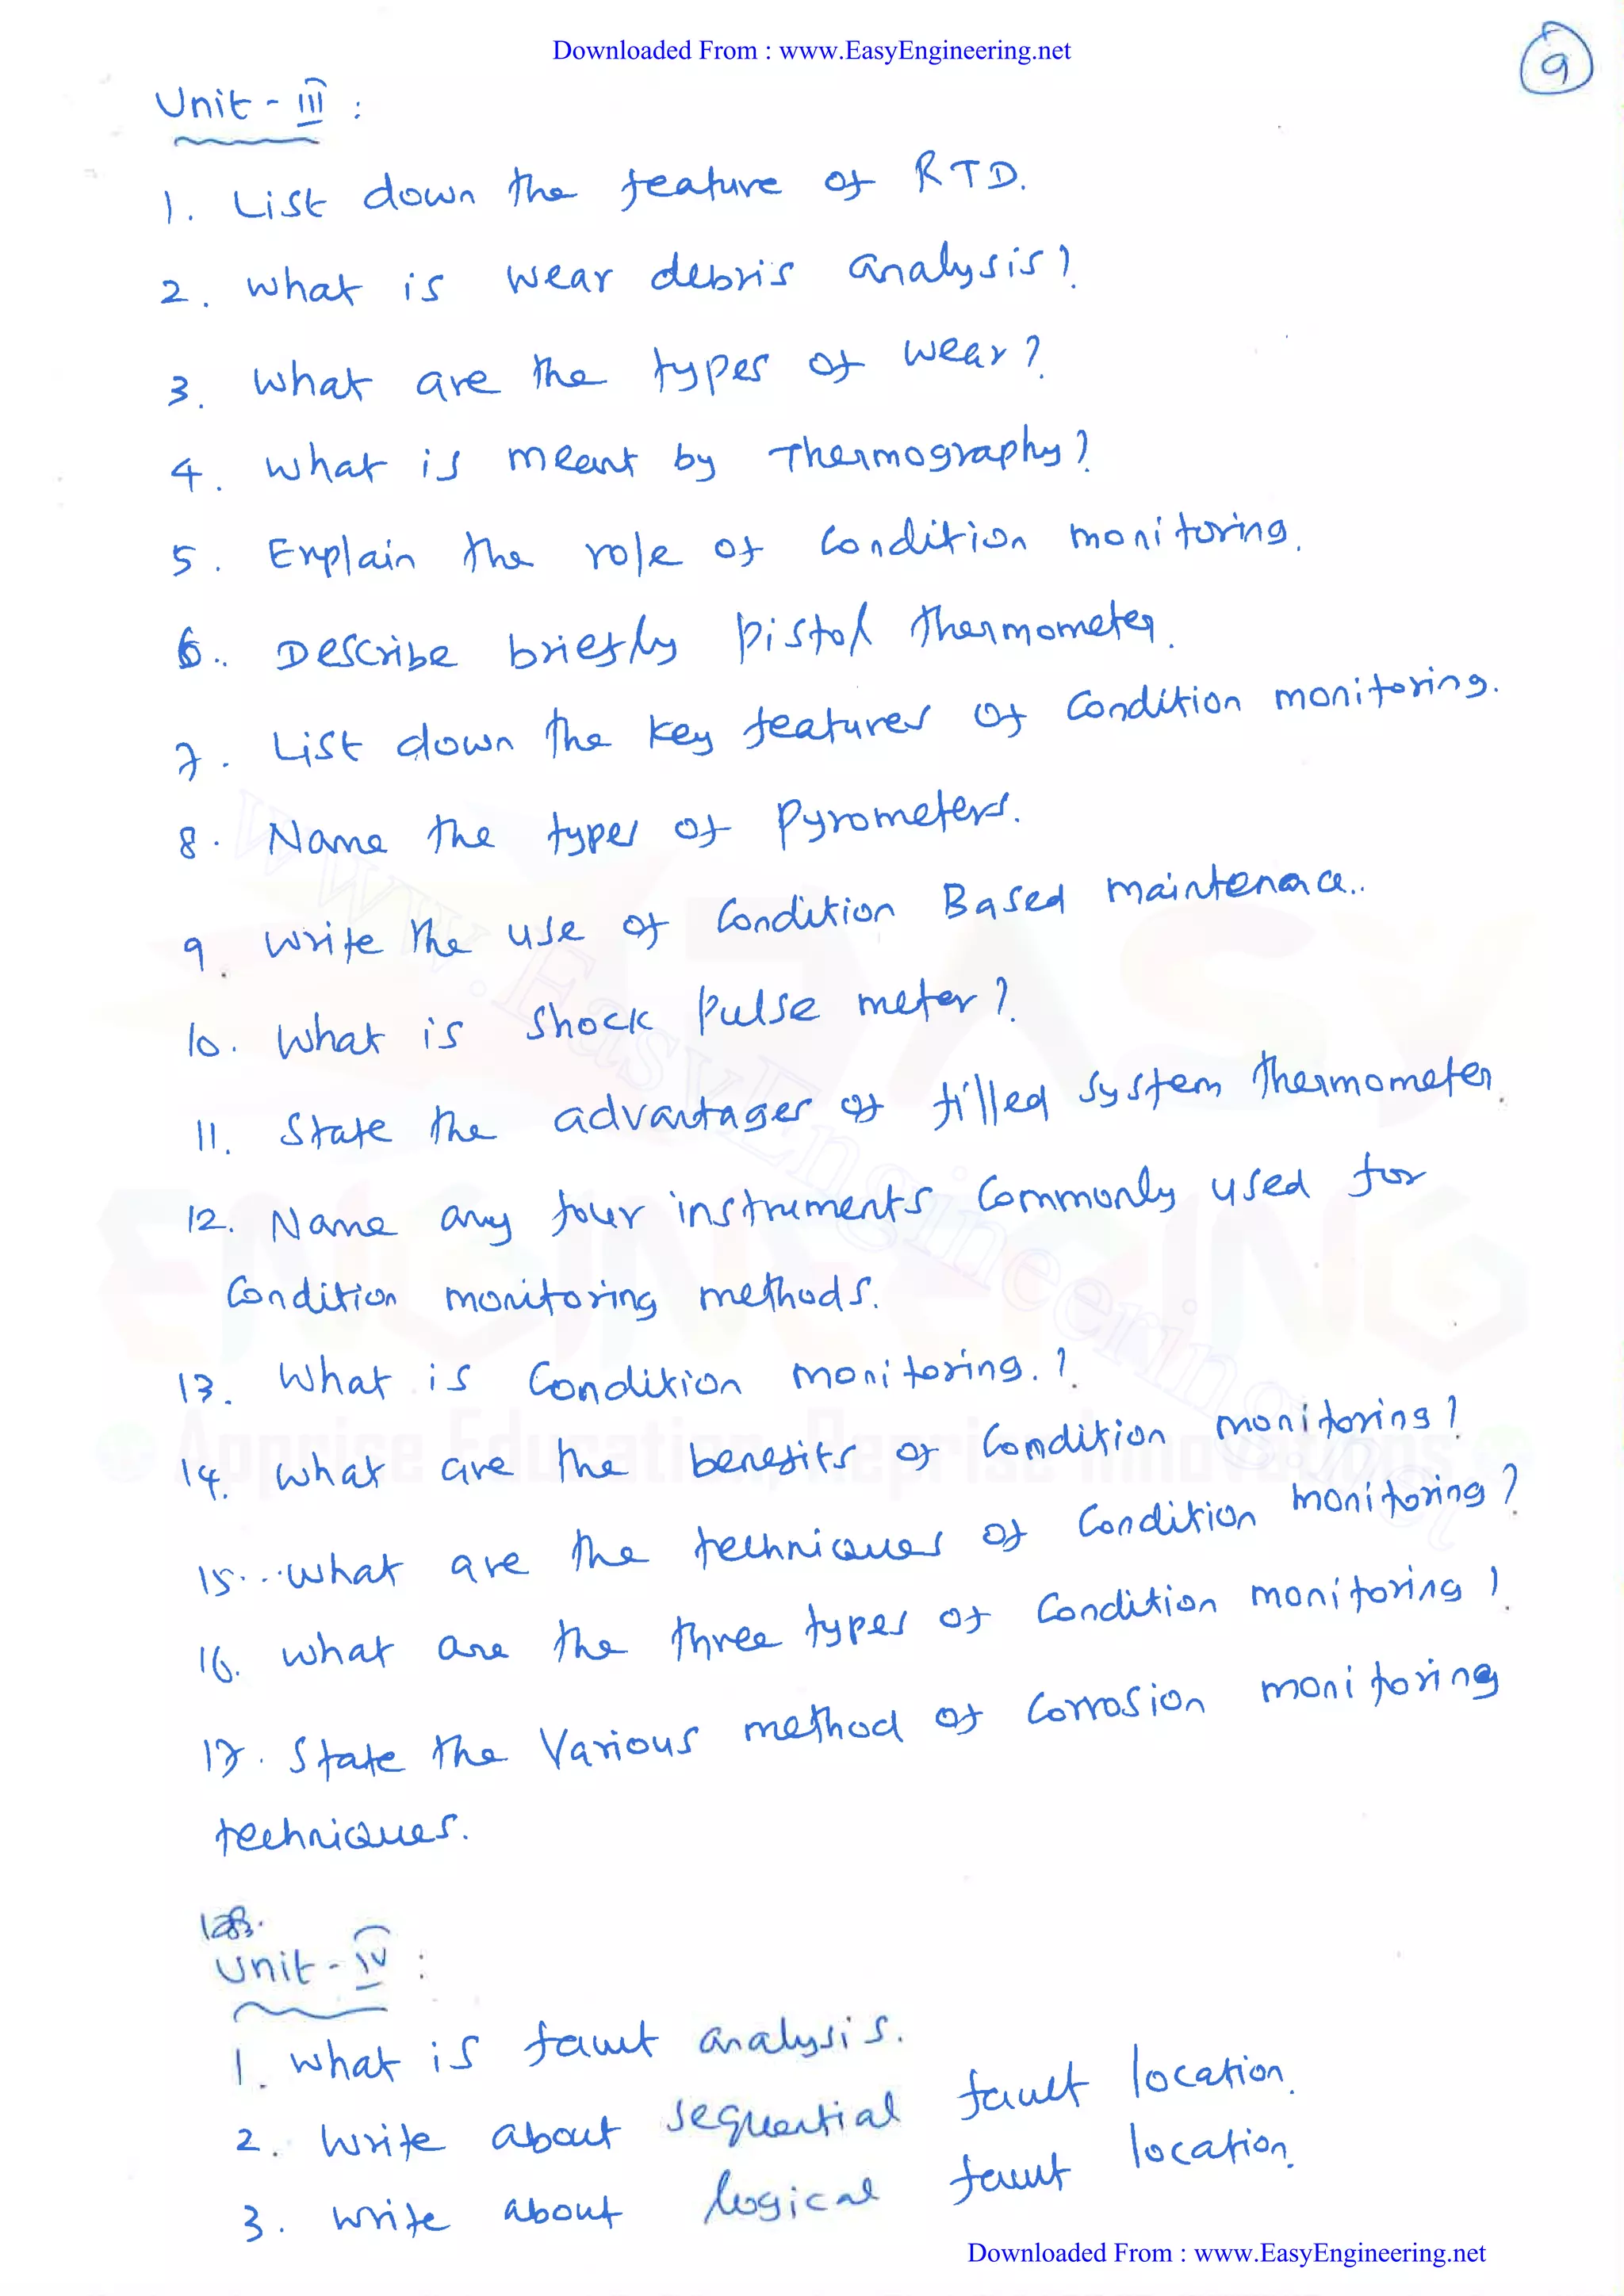 Downloaded From : www.EasyEngineering.net
9
Unit - III :
1. List down the feature of RTD.
2. What is wear debris analysis?
3. What are the types of wear?
4. What is meant by Thermography?
5. Explain the role of Condition monitoring.
6. Describe briefly Pistol thermometer.
7. List down the key features of Condition monitoring.
8. Name the types of Pyrometers.
9. Write the use of Condition Based maintenance..
10. What is Shock Pulse meter?
11. State the advantages of filled system thermometer.
12. Name any four instruments Commonly used for
Condition monitoring methods.
13. What is Condition monitoring.?
14. What are the benefits of Condition monitoring?
15. What are the techniques of Condition monitoring?
16. What are the three types of Condition monitoring?
17. State the Various method of Corrosion monitoring
techniques.
Unit - IV :
1. What is fault analysis.
2. Write about sequential fault location.
3. Write about logical fault location.
www.EasyEngineering.net
EASY
ENGINEERING
Apprise Education, Reprise Innovations
Downloaded From : www.EasyEngineering.net